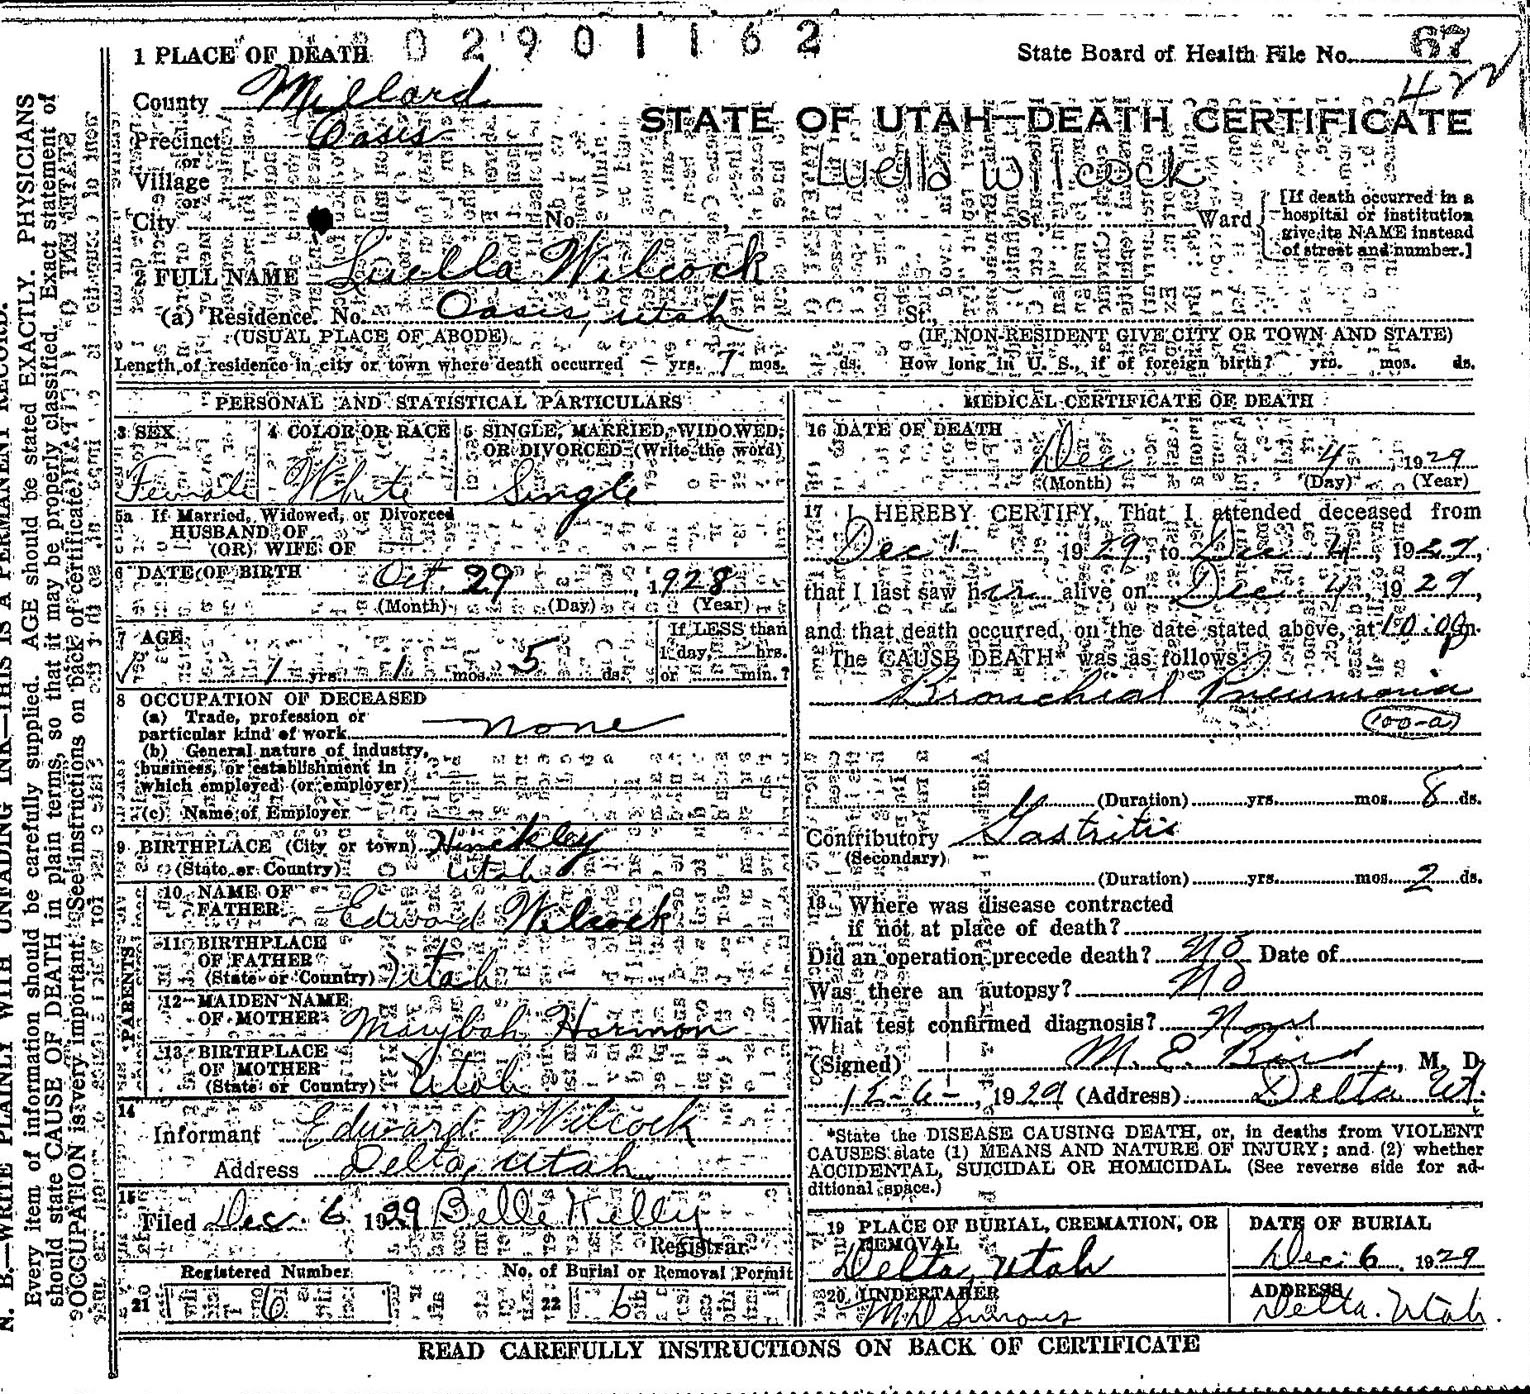 02901162
1 PLACE OF DEATH
State Board of Health File No. 67
422
County Millard
STATE OF UTAH—DEATH CERTIFICATE
Precinct Oasis
or
Village
Luella Wilcock
or
City No. St., Ward
[If death occurred in a
hospital or institution
give its NAME instead
of street and number.]
FULL NAME Luella Wilcock
(a) Residence. No. Oasis, Utah St.
(USUAL PLACE OF ABODE) (IF NON-RESIDENT GIVE CITY OR TOWN AND STATE)
Length of residence in city or town where death occurred - yrs. 7 mos. ds. How long in U. S., if of foreign birth? yrs. mos. ds.
PERSONAL AND STATISTICAL PARTICULARS
3 SEX 4 COLOR OR RACE 5 SINGLE, MARRIED, WIDOWED,
OR DIVORCED (Write the word)
Female White Single
5a If Married, Widowed, or Divorced
HUSBAND OF
(OR) WIFE OF
6 DATE OF BIRTH Oct. 29, 1928
(Month) (Day) (Year)
7 AGE If LESS than
1 day, hrs.
1 yrs. 1 mos. 5 ds. or min.?
8 OCCUPATION OF DECEASED
(a) Trade, profession or
particular kind of work none
(b) General nature of industry,
business, or establishment in
which employed (or employer)
(c) Name of Employer
9 BIRTHPLACE (City or town) Hinckley
(State or Country) Utah
PARENTS
10 NAME OF
FATHER Edward Wilcock
11 BIRTHPLACE
OF FATHER
(State or Country) Utah
12 MAIDEN NAME
OF MOTHER Marybah Harmon
13 BIRTHPLACE
OF MOTHER
(State or Country) Utah
14
Informant Edward Wilcock
Address Delta, Utah
15
Filed Dec. 6 1929 Belle Kelly
Registrar
Registered Number No. of Burial or Removal Permit
21 6 22 6
MEDICAL CERTIFICATE OF DEATH
16 DATE OF DEATH
Dec 4, 1929
(Month) (Day) (Year)
17 I HEREBY CERTIFY, That I attended deceased from
Dec 1, 1929, to Dec. 4, 1929,
that I last saw her alive on Dec 4, 1929,
and that death occurred, on the date stated above, at 10:00 pm.
The CAUSE DEATH* was as follows:
Bronchial Pneumonia
100-a
(Duration) yrs. mos. 8 ds.
Contributory Gastritis
(Secondary)
(Duration) yrs. mos. 2 ds.
18 Where was disease contracted
if not at place of death?
Did an operation precede death? No Date of
Was there an autopsy? No
What test confirmed diagnosis? None
(Signed) M. E. Bird, M. D.
12-6-, 1929 (Address) Delta Ut.
*State the DISEASE CAUSING DEATH, or, in deaths from VIOLENT
CAUSES state (1) MEANS AND NATURE OF INJURY; and (2) whether
ACCIDENTAL, SUICIDAL OR HOMICIDAL. (See reverse side for ad-
ditional space.)
19 PLACE OF BURIAL, CREMATION, OR
REMOVAL
Delta, Utah
DATE OF BURIAL
Dec. 6, 1929
20 UNDERTAKER
ADDRESS
Delta. Utah.
READ CAREFULLY INSTRUCTIONS ON BACK OF CERTIFICATE
N. B.—WRITE PLAINLY WITH UNFADING INK—THIS IS A PERMANENT RECORD.
Every item of information should be carefully supplied. AGE should be stated EXACTLY. PHYSICIANS
should state CAUSE OF DEATH in plain terms, so that it may be properly classified. Exact statement of
OCCUPATION is very important. See instructions on back of certificate.